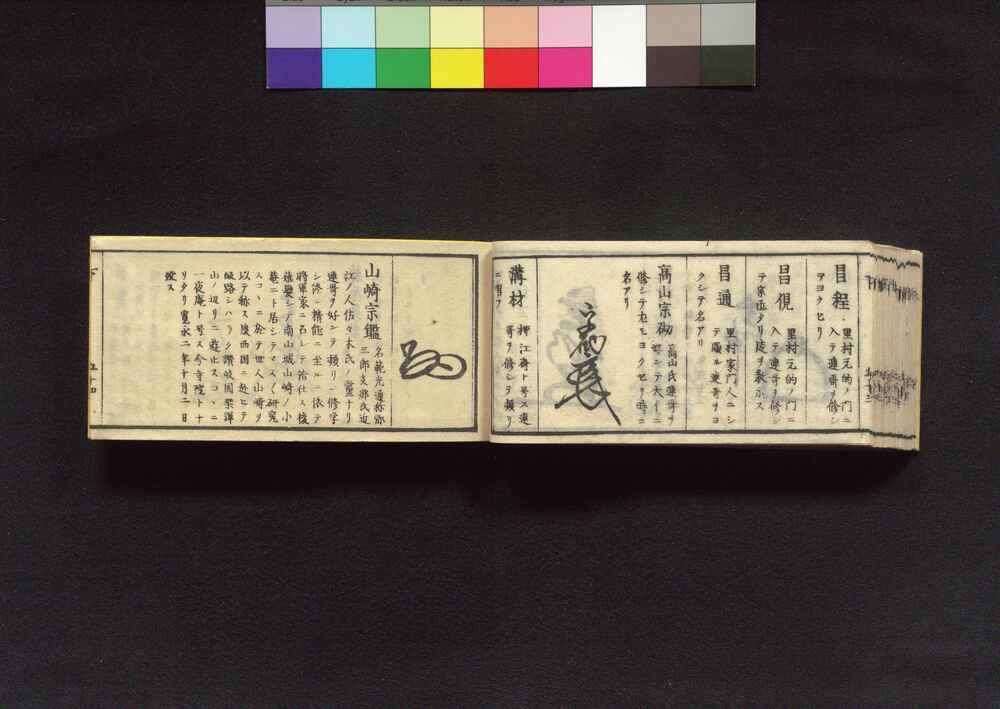 昌程 里村元的ノ門ニ
入テ連哥ヲ修シ
アヨクセリ
昌俔 里村元的ノ門ニ
入テ連哥ヲ修シ
テ宗匠タリ徒ヲ教示ス
昌通 里村家門人ニシ
テ 連哥ヲヨ
クシテ名アリ
高山宗砌 高山氏連哥ヲ
シテ大イニ
修シテ尤モヨクセリ時ニ
名アリ
溝材 押江斎ト号ス連
哥ヲ修シテ頗リ
ニ習フ
山崎宗鑑 名範光通称弥
三郎支那氏近
江ノ人佐々木氏ノ党ナリ
連哥ヲ好シテ頻リニ修学
シ漆ニ精能ニ至ルニ依テ
将軍家ニ召レテ治仕ス後
薙髪シテ南山城山崎ノ小
庵ニト居シテマスマス研究
スコヽニ於テ世人山崎ヲ
以テ称ス後西国ニ赴ヒテ
岐路シハラク讃岐国琴弾
山ノ辺リニ遊止スコヽニ
一夜庵ト号ス今寺院ト十
リタリ寛永二年十月二日
歿ス
下
五十四